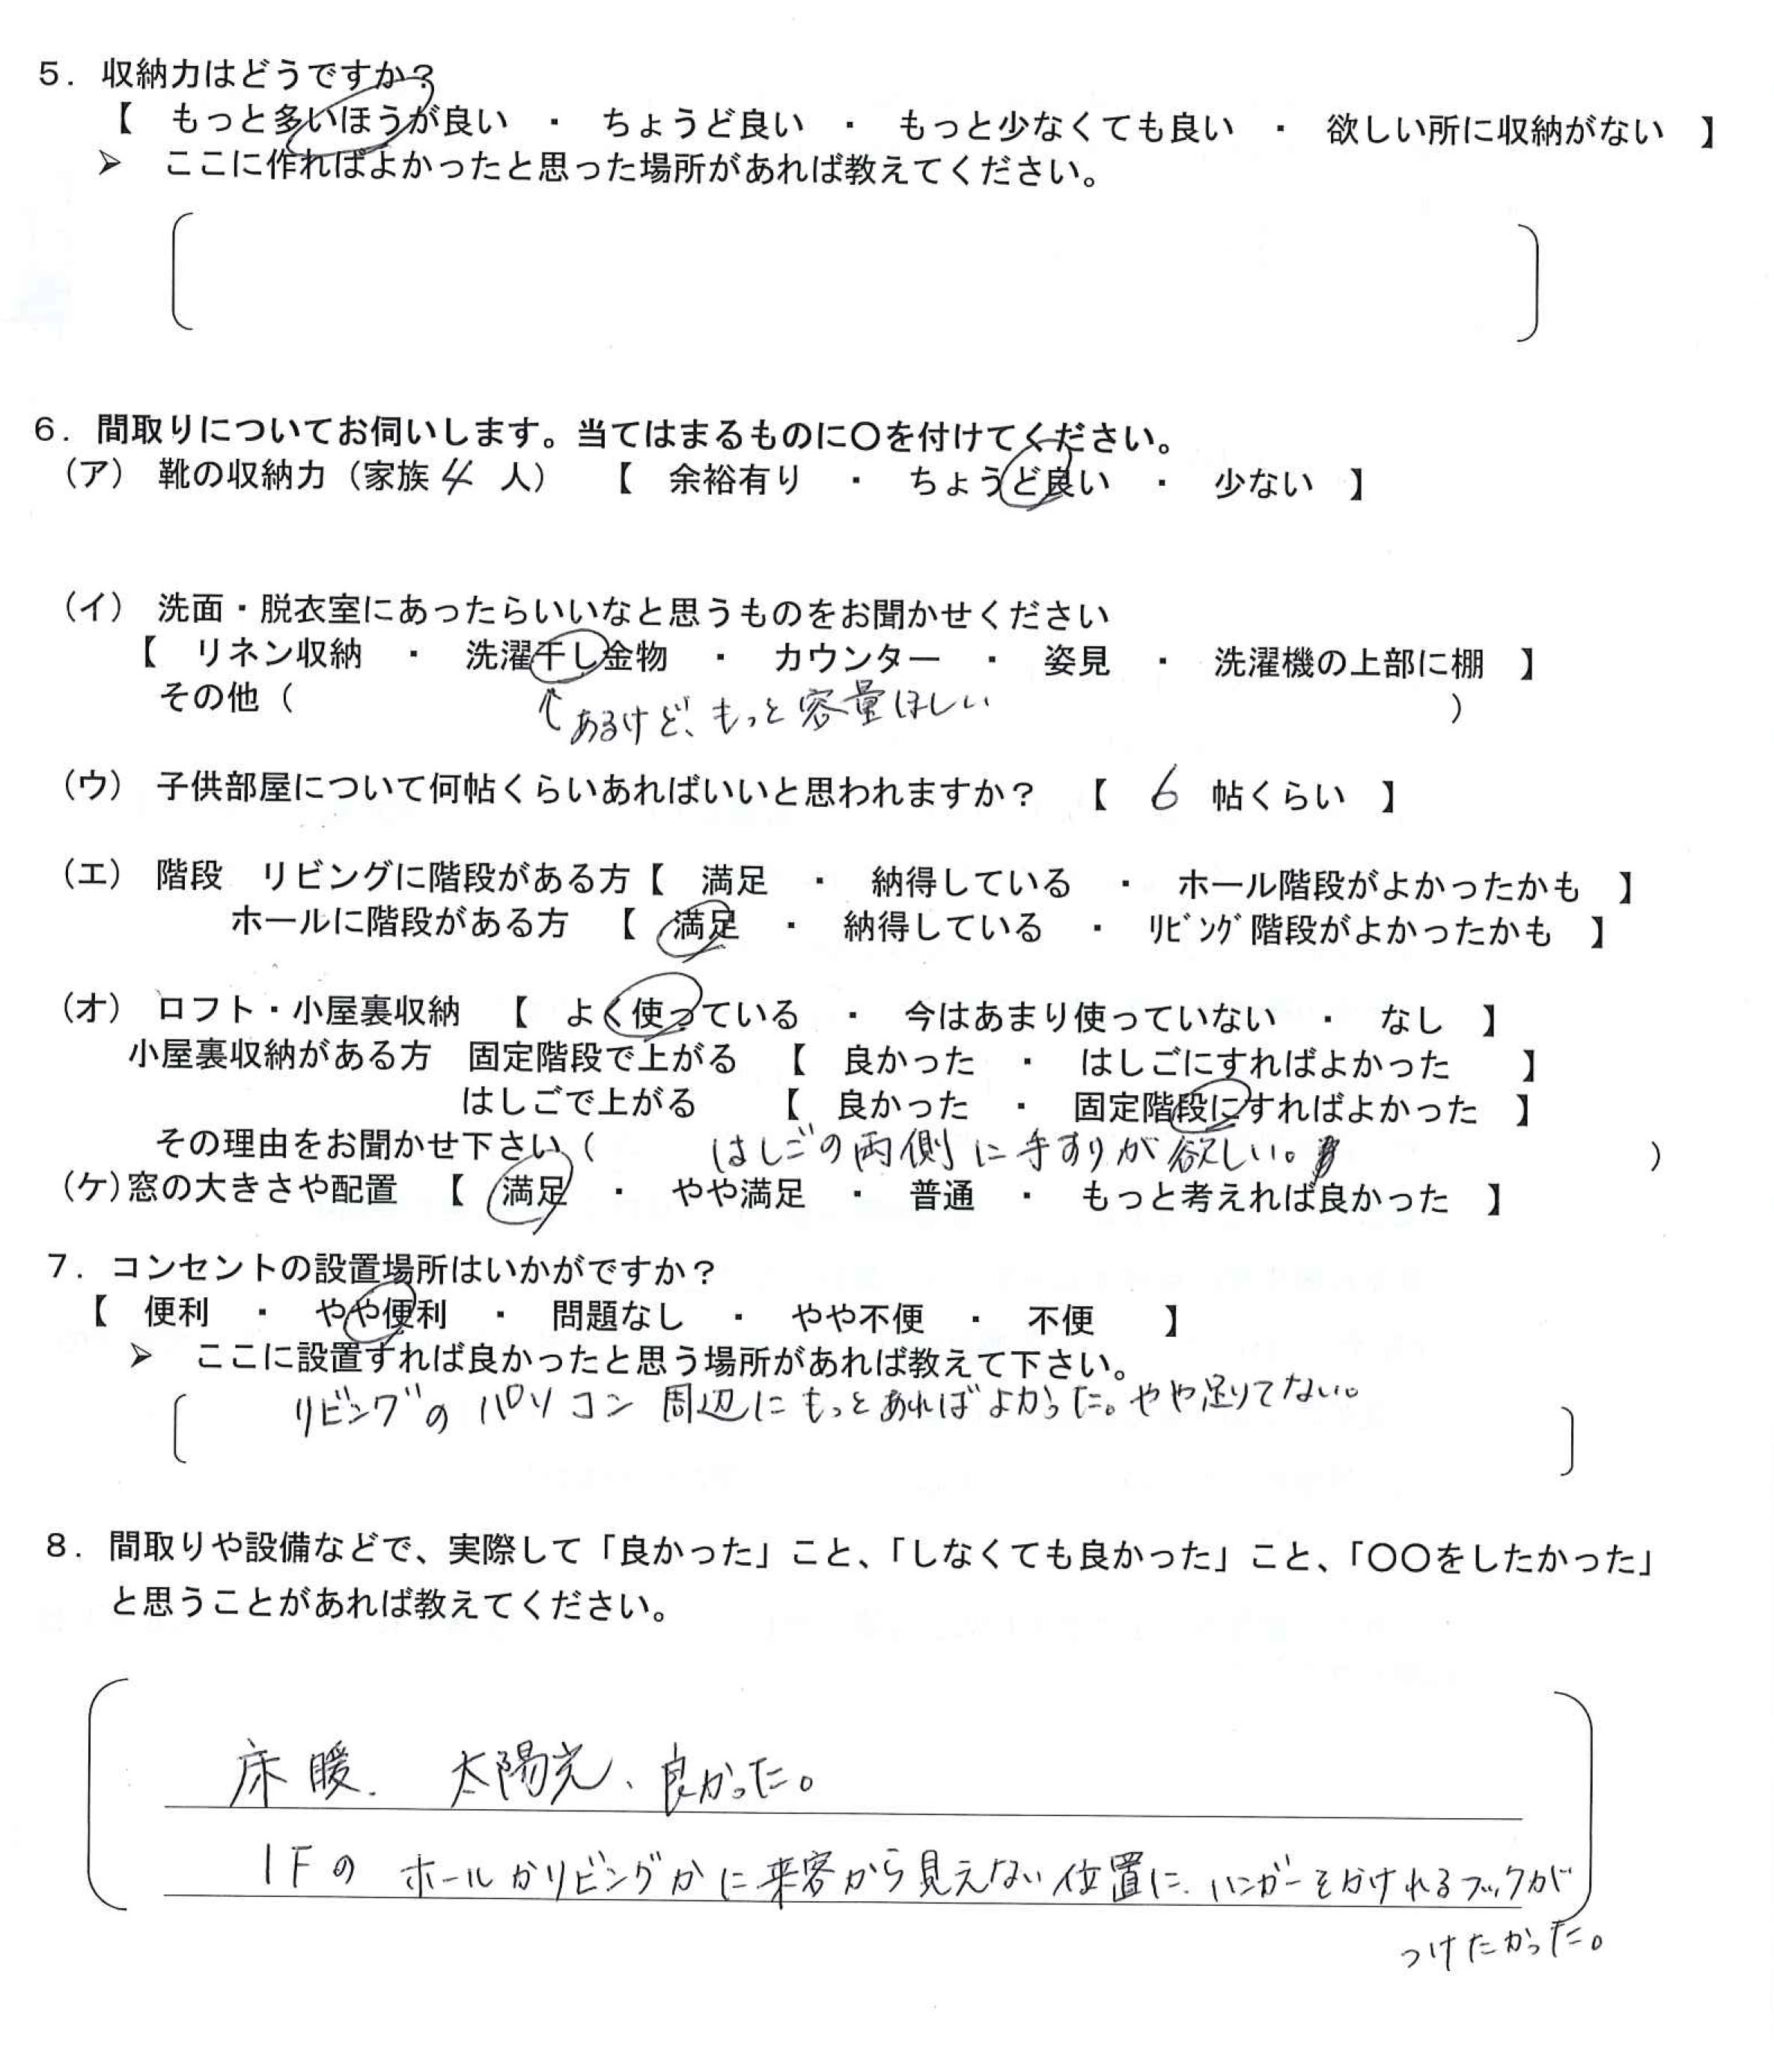 ５．収納力はどうですか？
【　もっと多いほうが良い　・　ちょうど良い　・　もっと少なくても良い　・　欲しい所に収納がない　】
➢　ここに作ればよかったと思った場所があれば教えてください。
６．間取りについてお伺いします。当てはまるものに〇を付けてください。
（ア）　靴の収納力（家族 4 人）　【　余裕有り　・　ちょうど良い　・　少ない　】
（イ）　洗面・脱衣室にあったらいいなと思うものをお聞かせください
【　リネン収納　・　洗濯干し金物　・　カウンター　・　姿見　・　洗濯機の上部に棚　】
その他（　↑あるけど、もっと容量ほしい　）
（ウ）　子供部屋について何帖くらいあればいいと思われますか？　【　6　帖くらい　】
（エ）　階段　リビングに階段がある方【　満足　・　納得している　・　ホール階段がよかったかも　】
ホールに階段がある方　【　満足　・　納得している　・　ﾘﾋﾞﾝｸﾞ階段がよかったかも　】
（オ）　ロフト・小屋裏収納　【　よく使っている　・　今はあまり使っていない　・　なし　】
小屋裏収納がある方　固定階段で上がる　【　良かった　・　はしごにすればよかった　】
はしごで上がる　【　良かった　・　固定階段にすればよかった　】
その理由をお聞かせ下さい（　はしごの両側に手すりが欲しい。　）
（ケ）窓の大きさや配置　【　満足　・　やや満足　・　普通　・　もっと考えれば良かった　】
７．コンセントの設置場所はいかがですか？
【　便利　・　やや便利　・　問題なし　・　やや不便　・　不便　】
➢　ここに設置すれば良かったと思う場所があれば教えて下さい。
リビングのパソコン周辺にもっとあればよかった。やや足りてない。
８．間取りや設備などで、実際して「良かった」こと、「しなくても良かった」こと、「〇〇をしたかった」
と思うことがあれば教えてください。
床暖、太陽光、良かった。
1Fの ホールかリビングかに来客から見えない位置に、ハンガーをかけれるフックが
つけたかった。